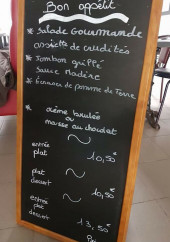 Bon appétit
* Salade Gourmande
assiette de crudités
* Jambon grillé
Sauce Madère
* Écrasée de pomme de Terre
* crème brulée
ou
mousse au chocolat
entrée
plat
10,50€
plat
dessert
10,50€
entrée
plat
dessert
13,50€